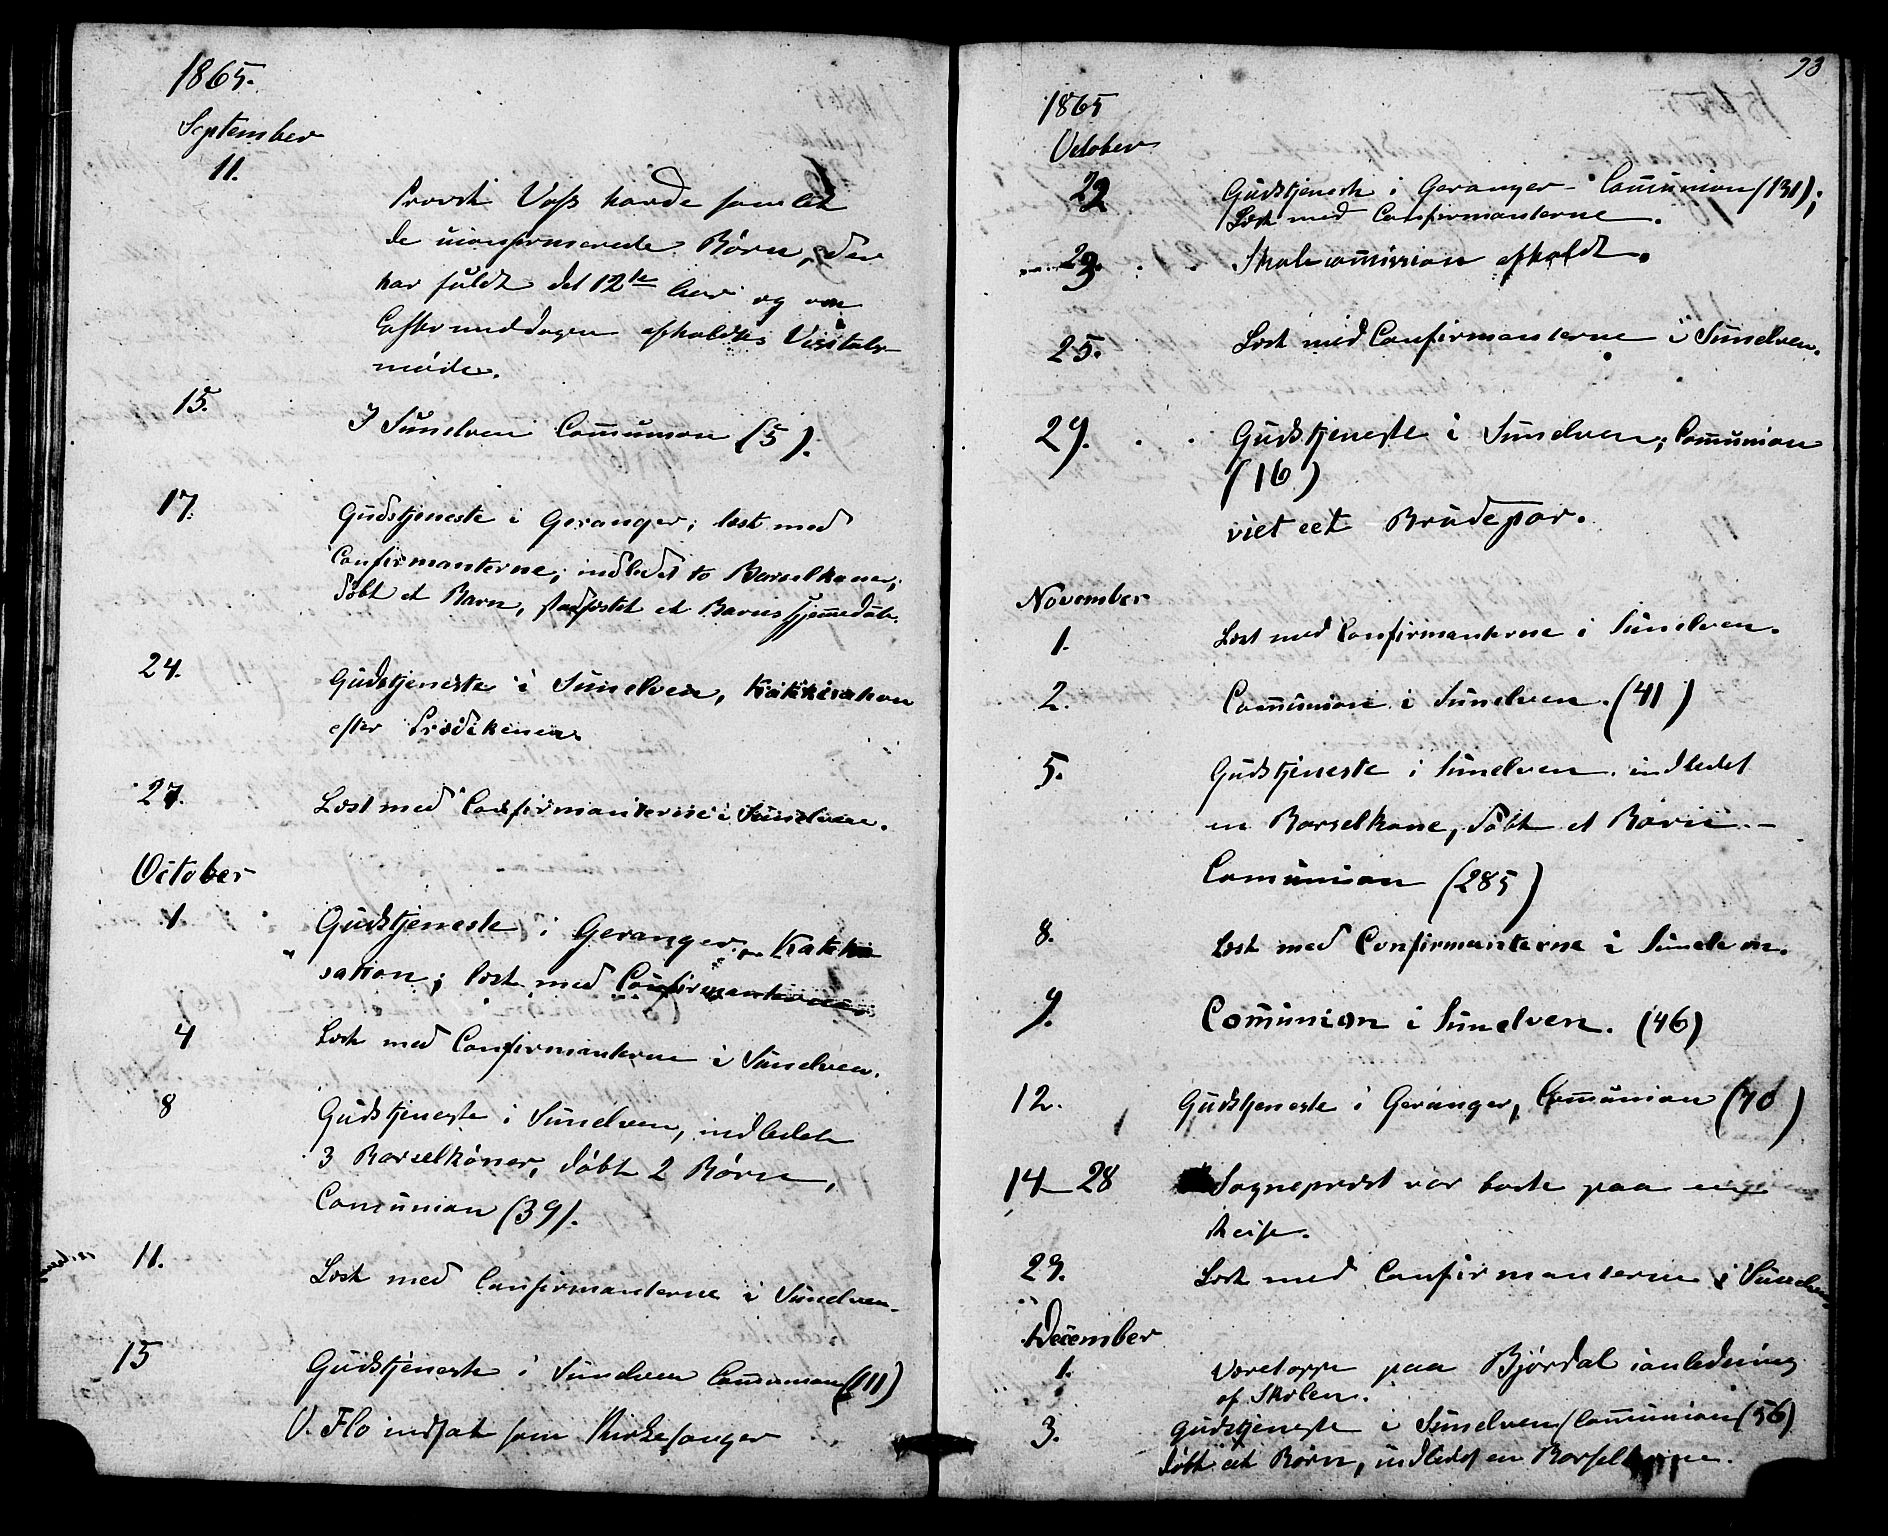 1865.
September
11.
Provst Voss havde samlet
de uconfirmerede Børn, der
har fuldt det 12te Aar og om
Eftermiddagen afholdtes Visitats-
møde.
15.
I Sunelven Communion (5).
17.
Gudstjeneste i Geranger; læst med
Confirmanterne; indledet to Barselkoner,
døbt et Barn, stadfæstet et Barns Hjemmedåb.
24.
Gudstjeneste i Sunelven, Katkisation
efter Prædikenen.
27.
Læst med Confirmanterne i Sunelven.
October
1
Gudstjeneste i Geranger, Katki
sation; læst med Confirmanterne
4
Læst med Confirmanterne i Sunelven.
8
Gudstjeneste i Sunelven, indledet
3 Barselkoner, døbt 2 Børn,
Comunion (39).
11.
Læst med Confirmanterne i Sunelven.
15
Gudstjeneste i Sunelven Communion (111)
O. Flo indsat som Kirkesanger
93
1865
October
22
Gudstjeneste i Geranger - Communion (131);
Læst med Confirmanterne.
23.
Skolecommission afholdt.
25.
Læst med Confirmanterne i Sunelven.
29.
Gudstjeneste i Sunelven; Communion
(16)
viet eet Brudepar.
November
1.
Læst med Confirmanterne i Sunelven.
2.
Communion i Sunelven. (41)
5.
Gudstjeneste i Sunelven. indledet
en Barselkone, døbt et Barn. -
Comunion (285)
8.
Læst med Confirmanterne i Sunelven.
9.
Communion i Sunelven. (46)
12.
Gudstjeneste i Geranger, Communion (70)
14-28
Sognepræst var borte paa en
Reise.
29.
Læst med Confirmanterne i Sunelven
December
1.
Væretoppe paa Bjørdal ianledning
af Skolen.
3.
Gudstjeneste i Sunelven Communion (56)
døbt eet Barn, indledet en Barselkone.